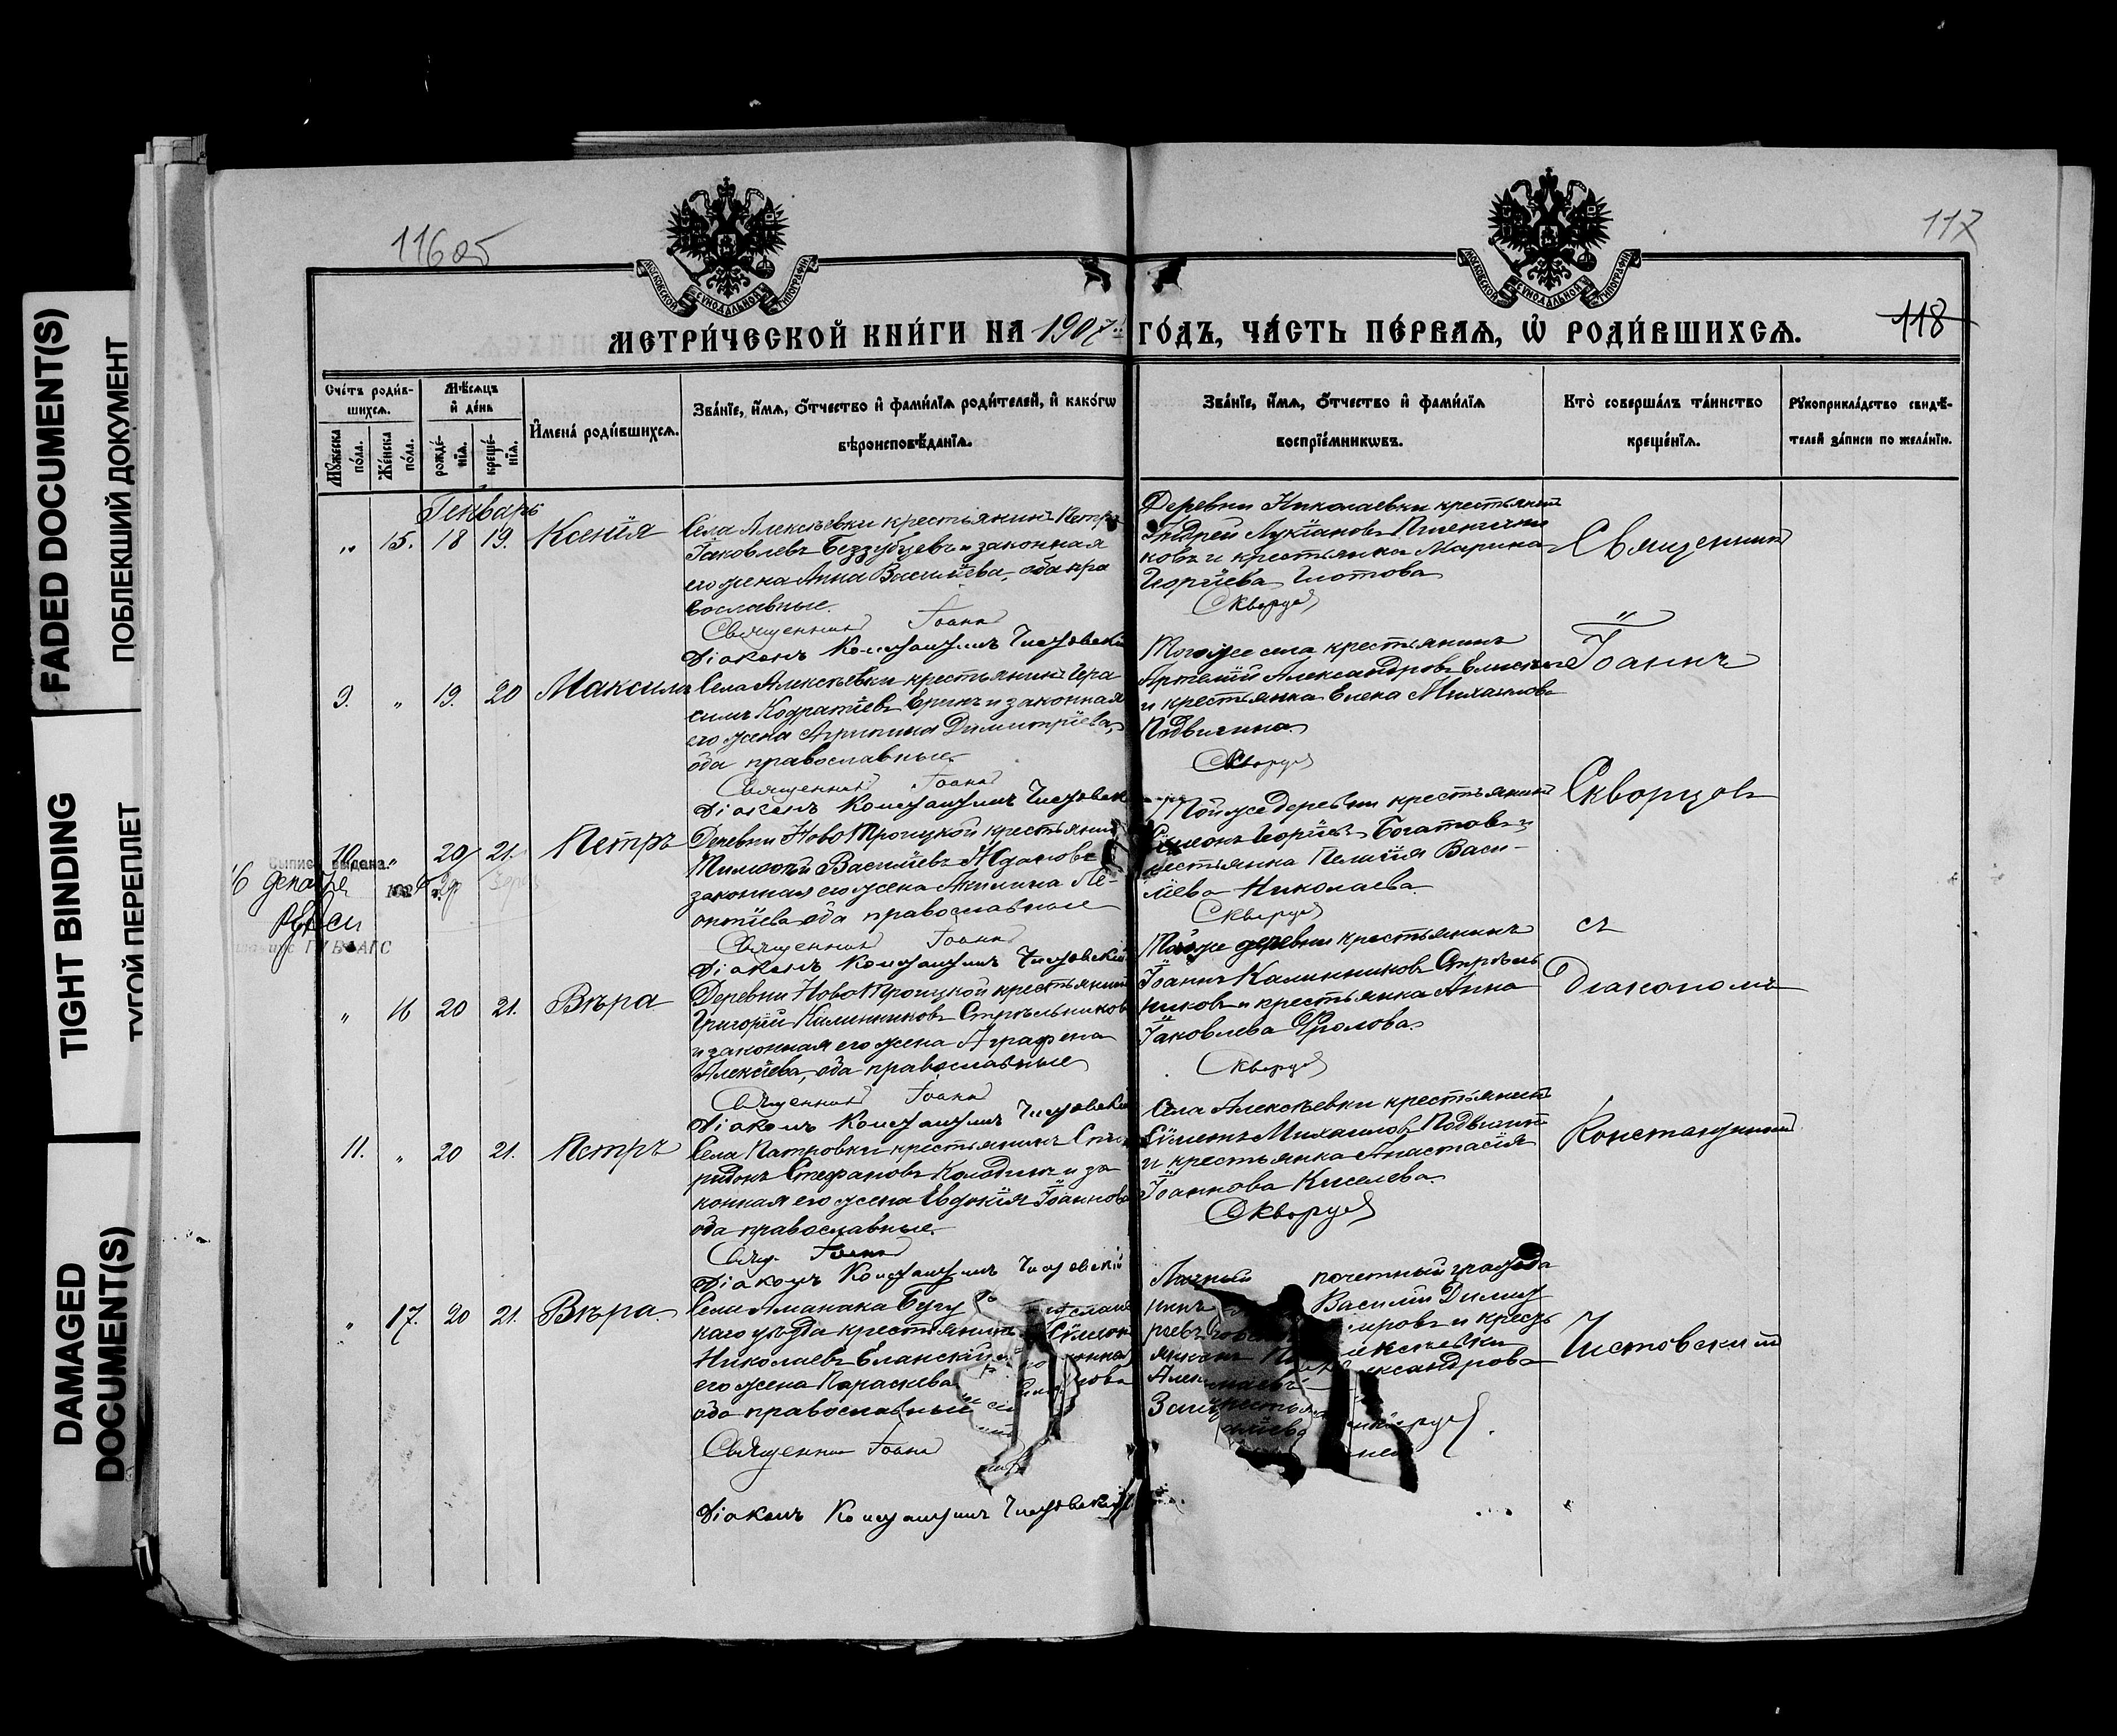 FADED DOCUMENT(S)
ПОБЛЕКШИЙ ДОКУМЕНТ
TIGHT BINDING
ТУГОЙ ПЕРЕПЛЕТ
DAMAGED
DOCUMENT(S)
116об
117
118
МОСКОВСКОЙ СУНОДАЛЬНОЙ ТИПОГРАФИИ
МОСКОВСКОЙ СУНОДАЛЬНОЙ ТИПОГРАФИИ
МЕТРИ́ЧЕСКОЙ КНИ́ГИ НА 1907й ГО́ДЪ, ЧА́СТЬ ПЕ́РВАѦ, Ѡ҆ РОДИ́ВШИХСѦ.
Сче́тъ роди́в-
шихсѧ.
Мꙋ́жеска
по́ла.
Же́нска
по́ла.
Мѣ́сѧцъ
и҆ де́нь
рожде́-
нїѧ.
креще́-
нїѧ.
И҆мена́ роди́вшихсѧ.
Зва́нїе, и҆́мѧ, ѻ҆́тчество и҆ фами́лїѧ роди́телей, и҆ како́гѡ
вѣроисповѣ́данїѧ.
Зва́нїе, и҆́мѧ, ѻ҆́тчество и҆ фами́лїѧ
воспрїе́мникѡвъ.
Кто̀ соверша́лъ та́инство
креще́нїѧ.
Рꙋкоприкла́дство свидѣ́-
телей за́писи по жела́нїю.
Генварь
„ 15. 18 19. Ксенія
Села Алексѣевки крестьянинъ Петръ
Іаковлевъ Беззубцевъ и законная
его жена Анна Васильева, оба пра
вославные.
Священникъ Іоаннъ
Діаконъ Константинъ Чистовскій
Деревни Николаевки крестьянинъ
Андрей Лукіановъ Пшенични
ковъ и крестьянка Марина
Георгіева Глотова
Скворцовъ
9. „ 19. 20 Максимъ
Села Алексѣевки крестьянинъ Гера
симъ Кодратіевъ Еринъ и законная
его жена Агрипина Димитріева,
оба православные.
Священникъ Іоаннъ
Діаконъ Константинъ Чистовскій
Того же села крестьянинъ
Артемій Александровъ
и крестьянка Елена Михаилова
Подвигина
Скворцовъ
10. „ 20 21. Петръ
Деревни Ново Троицкой крестьянинъ
Тимоѳей Васильевъ Ждановъ
законная его жена Акилина Ле-
онтіева оба православные
Священникъ Іоаннъ
Діаконъ Константинъ Чистовскій
Той же деревни крестьянинъ
Сѵмеонъ Георгіевъ Богатовъ и
крестьянка Пелагія Васи-
льева Николаева
Скворцовъ
выдана.
16 декабря
„ 16 20 21. Вѣра
Деревни Ново Троицкой крестьянинъ
Григорій Калинниковъ Стрѣльниковъ
и законная его жена Аграфена
Алексіева, оба православные
Священникъ Іоаннъ
Діаконъ Константинъ Чистовскій
Той же деревни крестьянинъ
Іоаннъ Калинниковъ Стрѣль
никовъ и крестьянка Анна
Іаковлева Фролова
Скворцовъ
11. „ 20 21. Петръ
Села Патровки крестьянинъ Спи
ридонъ Стефановъ Колодинъ и за
конная его жена Евдокія Іоаннова
оба православные.
Свящ. Іоаннъ
Діаконъ Константинъ Чистовскій
Села Алексѣевки крестьянинъ
Сѵмеонъ Михаиловъ Подвигинъ
и крестьянка Анастасія
Іоаннова Киселева
Скворцовъ
„ 17. 20 21. Вѣра.
Села Аманака Бугу
каго уѣзда крестьянинъ Сѵмеонъ
Николаевъ Еланскій
его жена Параскева
оба православные
Священникъ Іоаннъ
Діаконъ Константинъ Чистовскій
Личный почетный гражда
нинъ Василій Димит
Священникъ
Іоаннъ
Скворцовъ
съ
Діакономъ
Константиномъ
Чистовскимъ